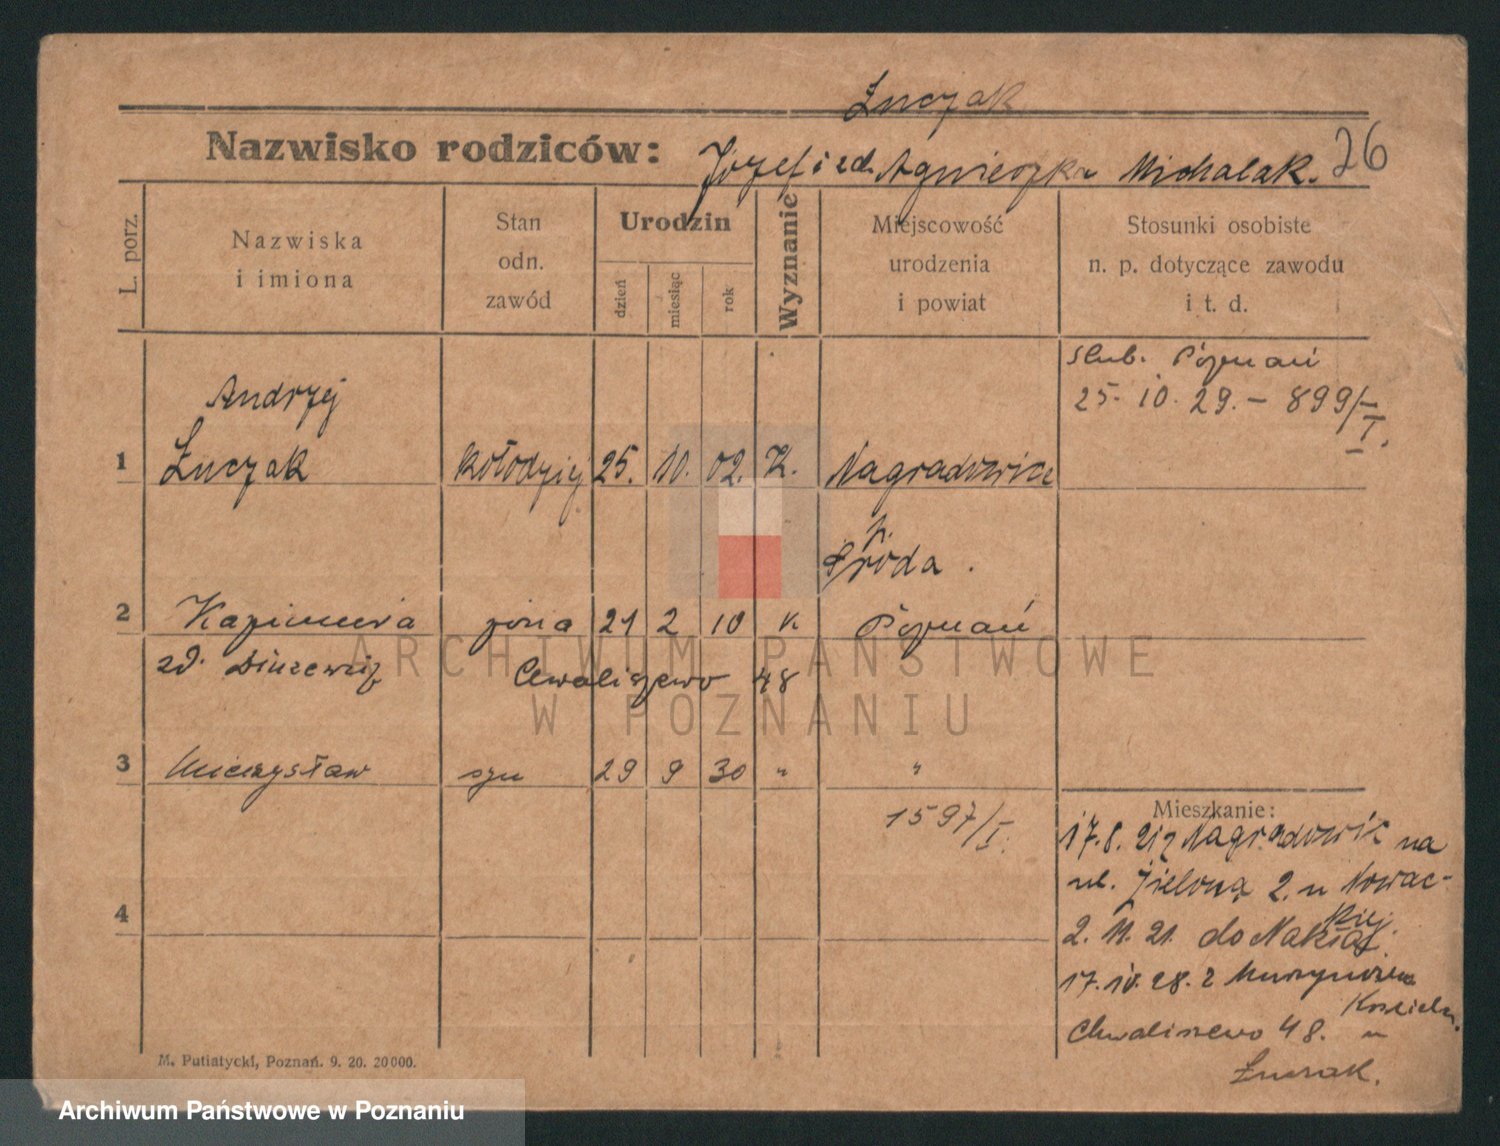 Łuczak
Nazwisko rodziców: Józef i zd. Agnieszka Michalak.
26
L. porz.
Nazwiska
i imiona
Stan
odn.
zawód
Urodzin
dzień
miesiąc
rok
Wyznanie
Miejscowość
urodzenia
i powiat
Stosunki osobiste
n. p. dotyczące zawodu
i t. d.
ślub. Poznań
25. 10. 29. – 899/I.
Andrzej
1 Łuczak kołodziej 25. 10. 02. K. Nagradowice
p.
Środa.
2 Kazimiera żona 21 2 10 k Poznań
zd. Chwaliszewo 48
ARCHIWUM PAŃSTWOWE
W POZNANIU
3 Mieczysław syn 29 9 30 " "
1597/I.
Mieszkanie:
17.8.21 z Nagradowic na
ul. Zieloną 2. u Nowac-
kiej.
2. 11. 21. do Nakła
17. 10. 28. z
Chwaliszewo 48. u
Łuczak.
4
M. Putiatycki, Poznań. 9. 20. 20000.
Archiwum Państwowe w Poznaniu